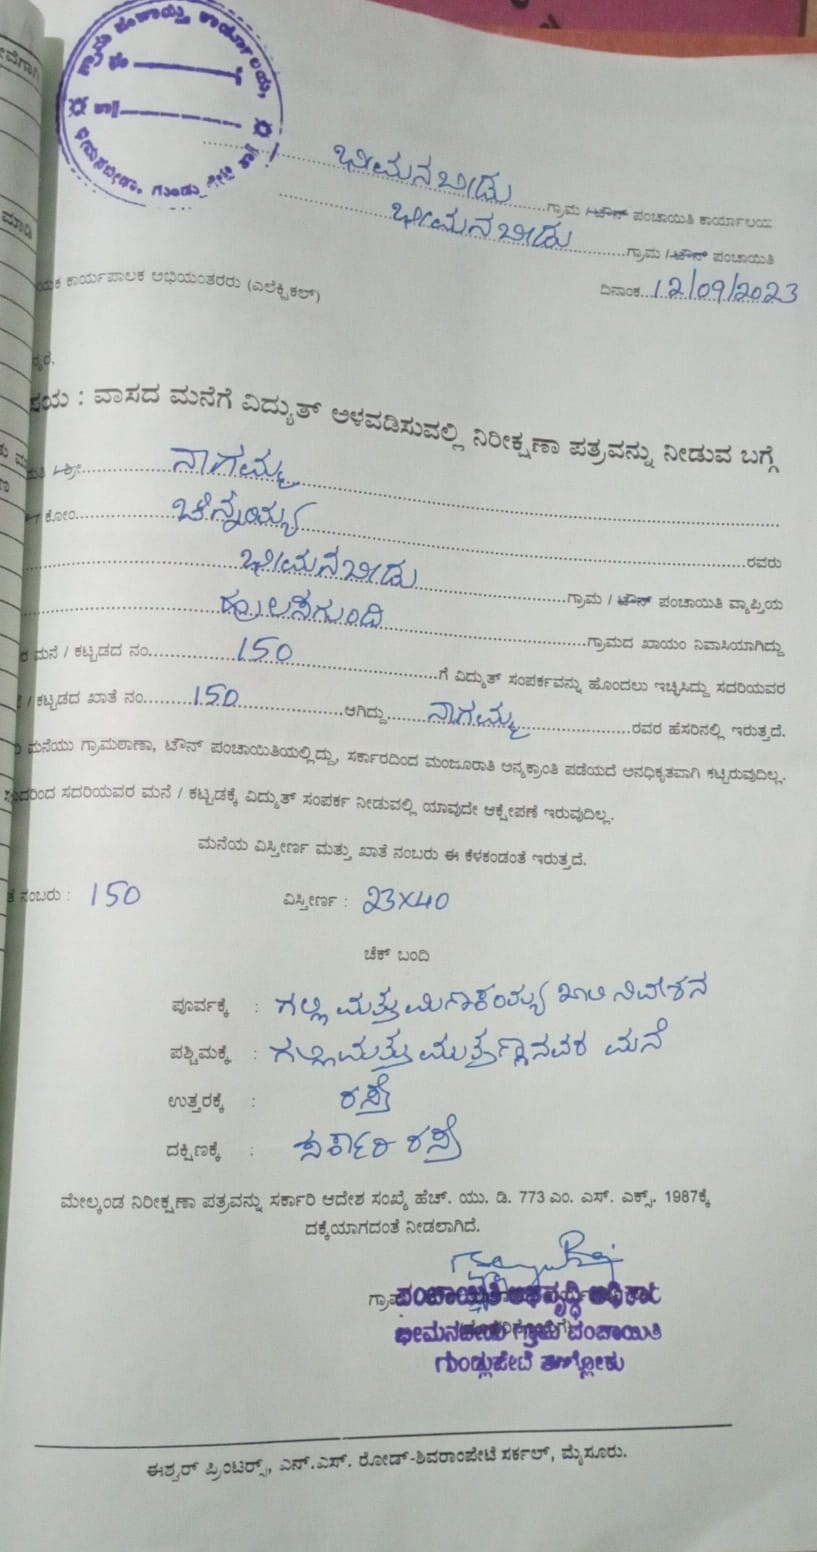 ಗ್ರಾಮ ಪಂಚಾಯ್ತಿ ಕಾರ್ಯಾಲಯ,
ಭೀಮನಬೀಡು ಗ್ರಾಮ / ಟೌನ್ ಪಂಚಾಯಿತಿ ಕಾರ್ಯಾಲಯ
ಭೀಮನಬೀಡು ಗ್ರಾಮ / ಟೌನ್ ಪಂಚಾಯಿತಿ
ಕಾರ್ಯಪಾಲಕ ಅಭಿಯಂತರರು (ಎಲೆಕ್ಟ್ರಿಕಲ್) ದಿನಾಂಕ 12/09/2023
: ವಾಸದ ಮನೆಗೆ ವಿದ್ಯುತ್ ಅಳವಡಿಸುವಲ್ಲಿ ನಿರೀಕ್ಷಣಾ ಪತ್ರವನ್ನು ನೀಡುವ ಬಗ್ಗೆ
ಶ್ರೀ ನಾಗಮ್ಮ
ಕೋಂ ಚೆನ್ನಯ್ಯ ರವರು
ಭೀಮನಬೀಡು ಗ್ರಾಮ / ಟೌನ್ ಪಂಚಾಯಿತಿ ವ್ಯಾಪ್ತಿಯ
ಹೂಲಸಗುಂದಿ ಗ್ರಾಮದ ಖಾಯಂ ನಿವಾಸಿಯಾಗಿದ್ದು
ಮನೆ / ಕಟ್ಟಡದ ನಂ. 150 ಗೆ ವಿದ್ಯುತ್ ಸಂಪರ್ಕವನ್ನು ಹೊಂದಲು ಇಚ್ಛಿಸಿದ್ದು ಸದರಿಯವರ
/ ಕಟ್ಟಡದ ಖಾತೆ ನಂ. 150 ಆಗಿದ್ದು ನಾಗಮ್ಮ ರವರ ಹೆಸರಿನಲ್ಲಿ ಇರುತ್ತದೆ.
ಮನೆಯು ಗ್ರಾಮಠಾಣಾ, ಟೌನ್ ಪಂಚಾಯಿತಿಯಲ್ಲಿದ್ದು, ಸರ್ಕಾರದಿಂದ ಮಂಜೂರಾತಿ ಅನ್ಯಕ್ರಾಂತಿ ಪಡೆಯದೆ ಅನಧಿಕೃತವಾಗಿ ಕಟ್ಟಿರುವುದಿಲ್ಲ.
ಸದರಿಯವರ ಮನೆ / ಕಟ್ಟಡಕ್ಕೆ ವಿದ್ಯುತ್ ಸಂಪರ್ಕ ನೀಡುವಲ್ಲಿ ಯಾವುದೇ ಆಕ್ಷೇಪಣೆ ಇರುವುದಿಲ್ಲ.
ಮನೆಯ ವಿಸ್ತೀರ್ಣ ಮತ್ತು ಖಾತೆ ನಂಬರು ಈ ಕೆಳಕಂಡಂತೆ ಇರುತ್ತದೆ.
ನಂಬರು : 150 ವಿಸ್ತೀರ್ಣ : 23x40
ಚೆಕ್ ಬಂದಿ
ಪೂರ್ವಕ್ಕೆ : ಗಲ್ಲಿ ಮತ್ತು ಖಾಲಿ ನಿವೇಶನ
ಪಶ್ಚಿಮಕ್ಕೆ : ಗಲ್ಲಿ ಮತ್ತು ಮುತ್ತಣ್ಣನವರ ಮನೆ
ಉತ್ತರಕ್ಕೆ : ರಸ್ತೆ
ದಕ್ಷಿಣಕ್ಕೆ : ಸರ್ಕಾರಿ ರಸ್ತೆ
ಮೇಲ್ಕಂಡ ನಿರೀಕ್ಷಣಾ ಪತ್ರವನ್ನು ಸರ್ಕಾರಿ ಆದೇಶ ಸಂಖ್ಯೆ ಹೆಚ್. ಯು. ಡಿ. 773 ಎಂ. ಎಸ್. ಎಕ್ಸ್. 1987ಕ್ಕೆ
ದಕ್ಕೆಯಾಗದಂತೆ ನೀಡಲಾಗಿದೆ.
ಪಂಚಾಯಿತಿ ಅಭಿವೃದ್ಧಿ ಅಧಿಕಾರಿ
ಭೀಮನಬೀಡು ಗ್ರಾಮ ಪಂಚಾಯಿತಿ
ಗುಂಡ್ಲುಪೇಟೆ ತಾಲ್ಲೋಕು
ಈಶ್ವರ್ ಪ್ರಿಂಟರ್ಸ್, ಎನ್.ಎಸ್. ರೋಡ್-ಶಿವರಾಂಪೇಟೆ ಸರ್ಕಲ್, ಮೈಸೂರು.